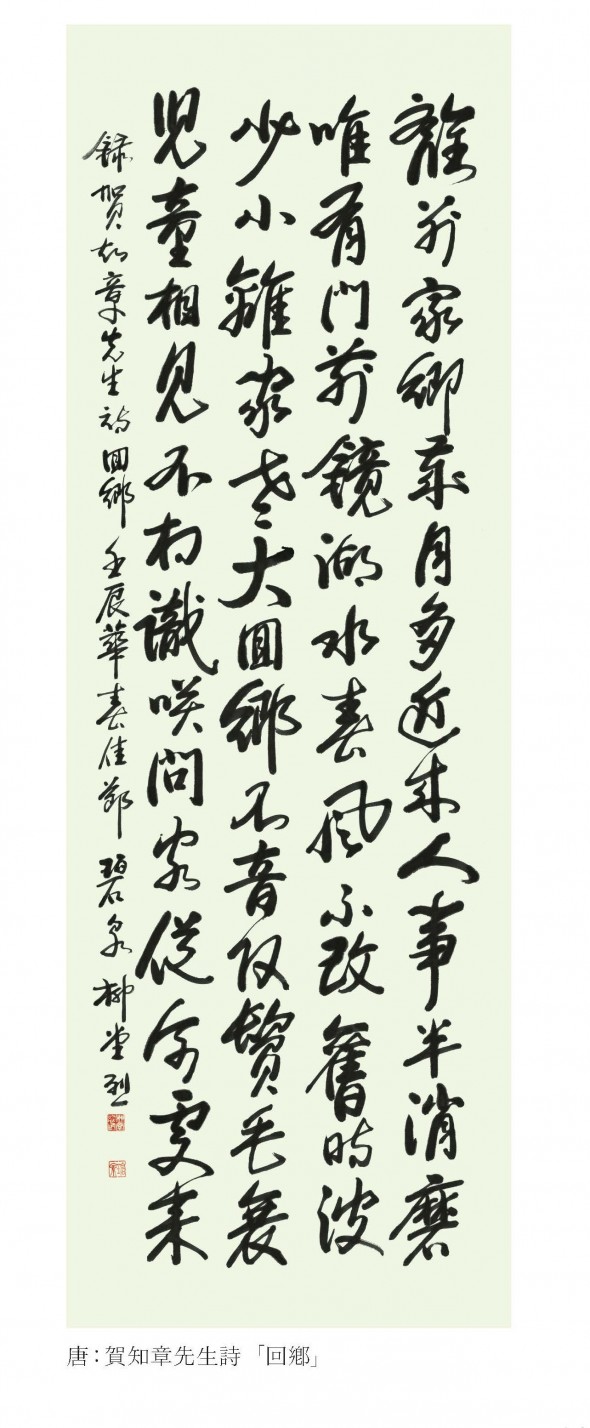 離別家鄉歲月多近來人事半消磨
唯有門前鏡湖水春風不改舊時波
少小離家老大回鄉不音改鬢毛衰
児童相見不相識咲問客從何處来
錄賀知章先生詩回鄉 壬辰華春佳節 碧泉 柳堂烈
唐：賀知章先生詩「回鄕」